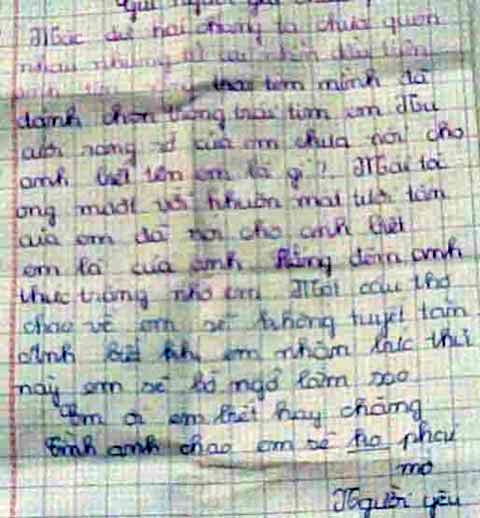 Mặc dù hai chúng ta chưa quen
nhau nhưng từ cái nhìn đầu tiên
trái tim mình đã
dành chọn trong trái tim em Nụ
cười rạng rỡ của em chưa nói cho
anh biết tên em là gì? Mái tóc
óng mượt với khuôn mặt tươi tắn
của em đã nói cho anh biết
em là của anh. Hằng đêm anh
thức trắng nhớ em Một câu thơ
chao về em sẽ không tuyệt tam
Anh biết khi em nhầm thức thư
này em sẽ bỡ ngỡ lắm sao
Em ơi em biết hay chăng
Tình anh chao em sẽ ho phai
mo
Người yêu